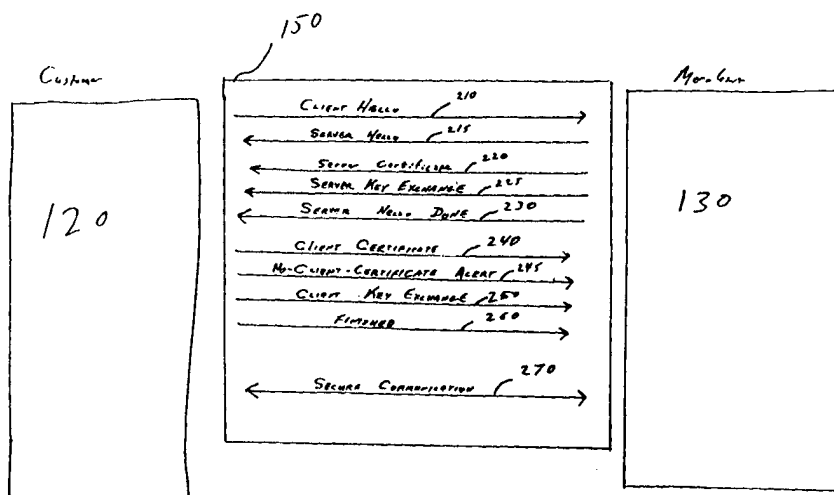 150
Customer
Merchant
CLIENT HELLO 210
SERVER HELLO 215
SERVER CERTIFICATE 220
SERVER KEY EXCHANGE 225
SERVER HELLO DONE 230
CLIENT CERTIFICATE 240
NO-CLIENT-CERTIFICATE ALERT 245
CLIENT KEY EXCHANGE 250
FINISHED 260
SECURE COMMUNICATION 270
120
130